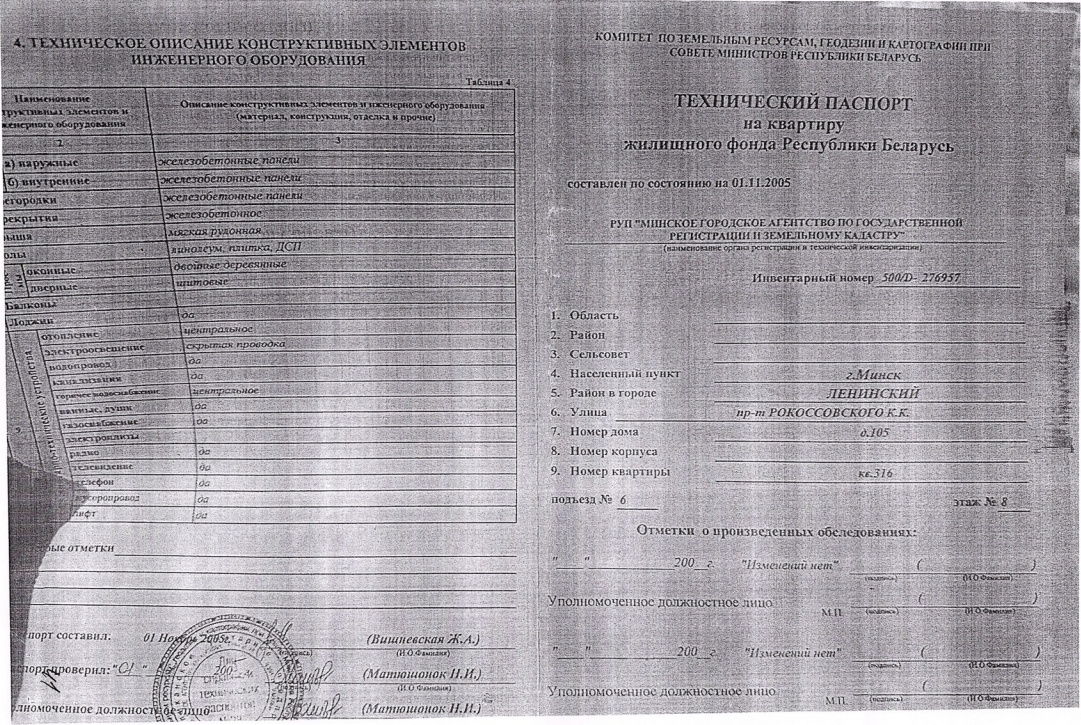 4. ТЕХНИЧЕСКОЕ ОПИСАНИЕ КОНСТРУКТИВНЫХ ЭЛЕМЕНТОВ
ИНЖЕНЕРНОГО ОБОРУДОВАНИЯ
Таблица 4
Наименование
структивных элементов и
женерного оборудования
Описание конструктивных элементов и инженерного оборудования
(материал, конструкция, отделка и прочие)
2 3
а) наружные железобетонные панели
б) внутренние железобетонные панели
егородки железобетонные панели
рекрытия железобетонное
рыша мягкая рулонная
олы линолеум, плитка, ДСП
оконные двойные деревянные
дверные щитовые
Балконы
Лоджии да
отопление центральное
электроосвещение скрытая проводка
водопровод да
канализация да
горячее водоснабжение центральное
ванные, души да
газоснабжение да
электроплиты
радио да
телевидение да
телефон да
мусоропровод да
лифт да
обые отметки
спорт составил: 01 Ноября 2005г. (Вишневская Ж.А.)
(подпись) (И.О.Фамилия)
спорт проверил: "01" (Матюшонок Н.И.)
(И.О.Фамилия)
лномоченное должностное лицо (Матюшонок Н.И.)
КОМИТЕТ ПО ЗЕМЕЛЬНЫМ РЕСУРСАМ, ГЕОДЕЗИИ И КАРТОГРАФИИ ПРИ
СОВЕТЕ МИНИСТРОВ РЕСПУБЛИКИ БЕЛАРУСЬ
ТЕХНИЧЕСКИЙ ПАСПОРТ
на квартиру
жилищного фонда Республики Беларусь
составлен по состоянию на 01.11.2005
РУП "МИНСКОЕ ГОРОДСКОЕ АГЕНТСТВО ПО ГОСУДАРСТВЕННОЙ
РЕГИСТРАЦИИ И ЗЕМЕЛЬНОМУ КАДАСТРУ"
(наименование органа регистрации и технической инвентаризации)
Инвентарный номер 500/D- 276957
1. Область
2. Район
3. Сельсовет
4. Населенный пункт г.Минск
5. Район в городе ЛЕНИНСКИЙ
6. Улица пр-т РОКОССОВСКОГО К.К.
7. Номер дома д.105
8. Номер корпуса
9. Номер квартиры кв.316
подъезд № 6 этаж № 8
Отметки о произведенных обследованиях:
"___"________200__г. "Изменений нет" ( )
(подпись) (И.О.Фамилия)
Уполномоченное должностное лицо ( )
М.П. (подпись) (И.О.Фамилия)
"___"________200__г. "Изменений нет" ( )
(подпись) (И.О.Фамилия)
Уполномоченное должностное лицо ( )
М.П. (подпись) (И.О.Фамилия)